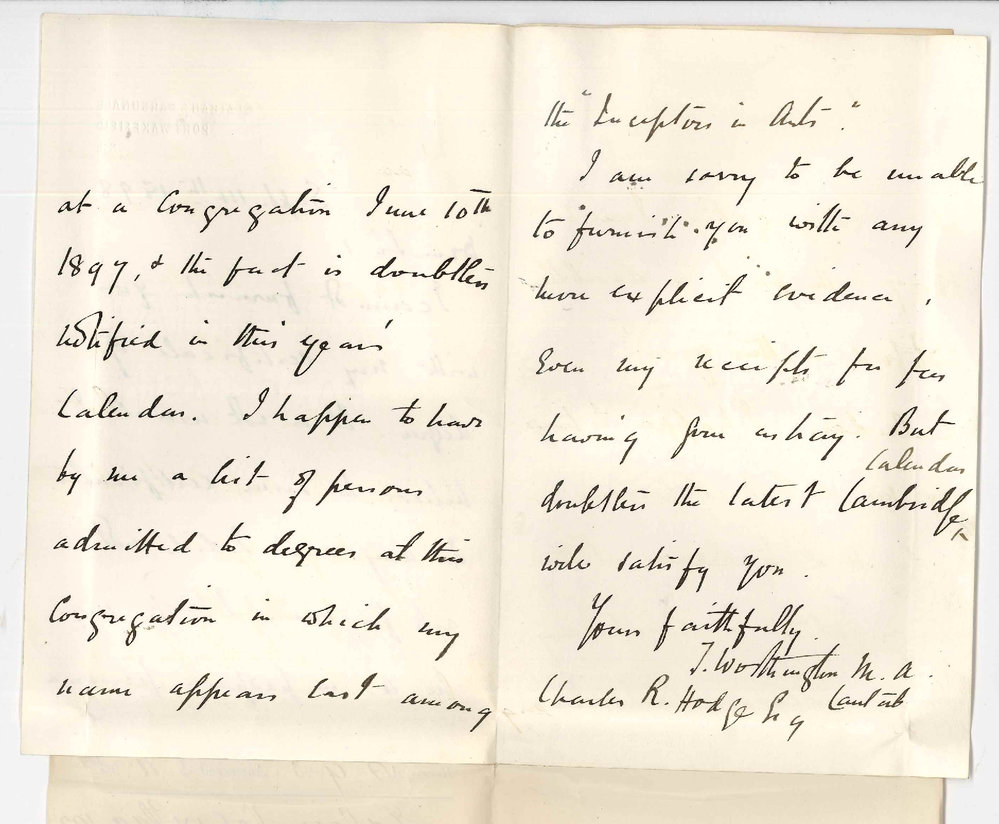 at a Congregation June 10th
1897, & the fact is doubtless
notified in this year's
Calendar. I happen to have
by me a list of persons
admitted to degrees at this
Congregation in which my
name appears last among
the "Inceptors in Arts".
I am sorry to be unable
to furnish you with any
more explicit evidence,
Even my receipts for fees
having gone astray. But
doubtless the latest Cambridge
Calendar
will satisfy you.
Yours faithfully.
T. Worthington M. A.
Cantab
Charles R. Hodge Esq